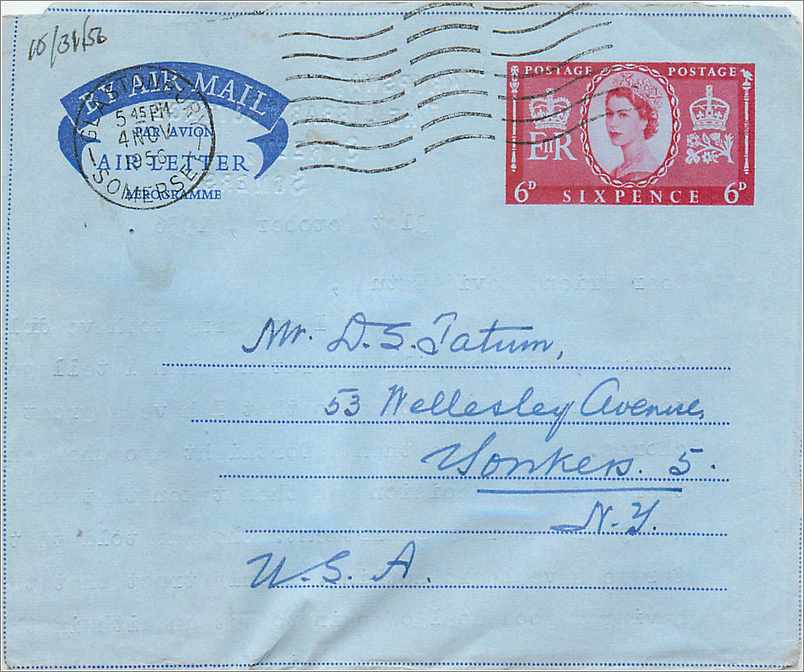 10/31/56
BY AIR MAIL
PAR AVION
AIR LETTER
AEROGRAMME
GLASTONBURY
5 45 PM
4 NOV
1956
SOMERSET
POSTAGE POSTAGE
E II R
6D SIXPENCE 6D
Mr. D. S. Tatum,
53 Wellesley Avenue,
Yonkers. 5.
N.Y.
U.S.A.